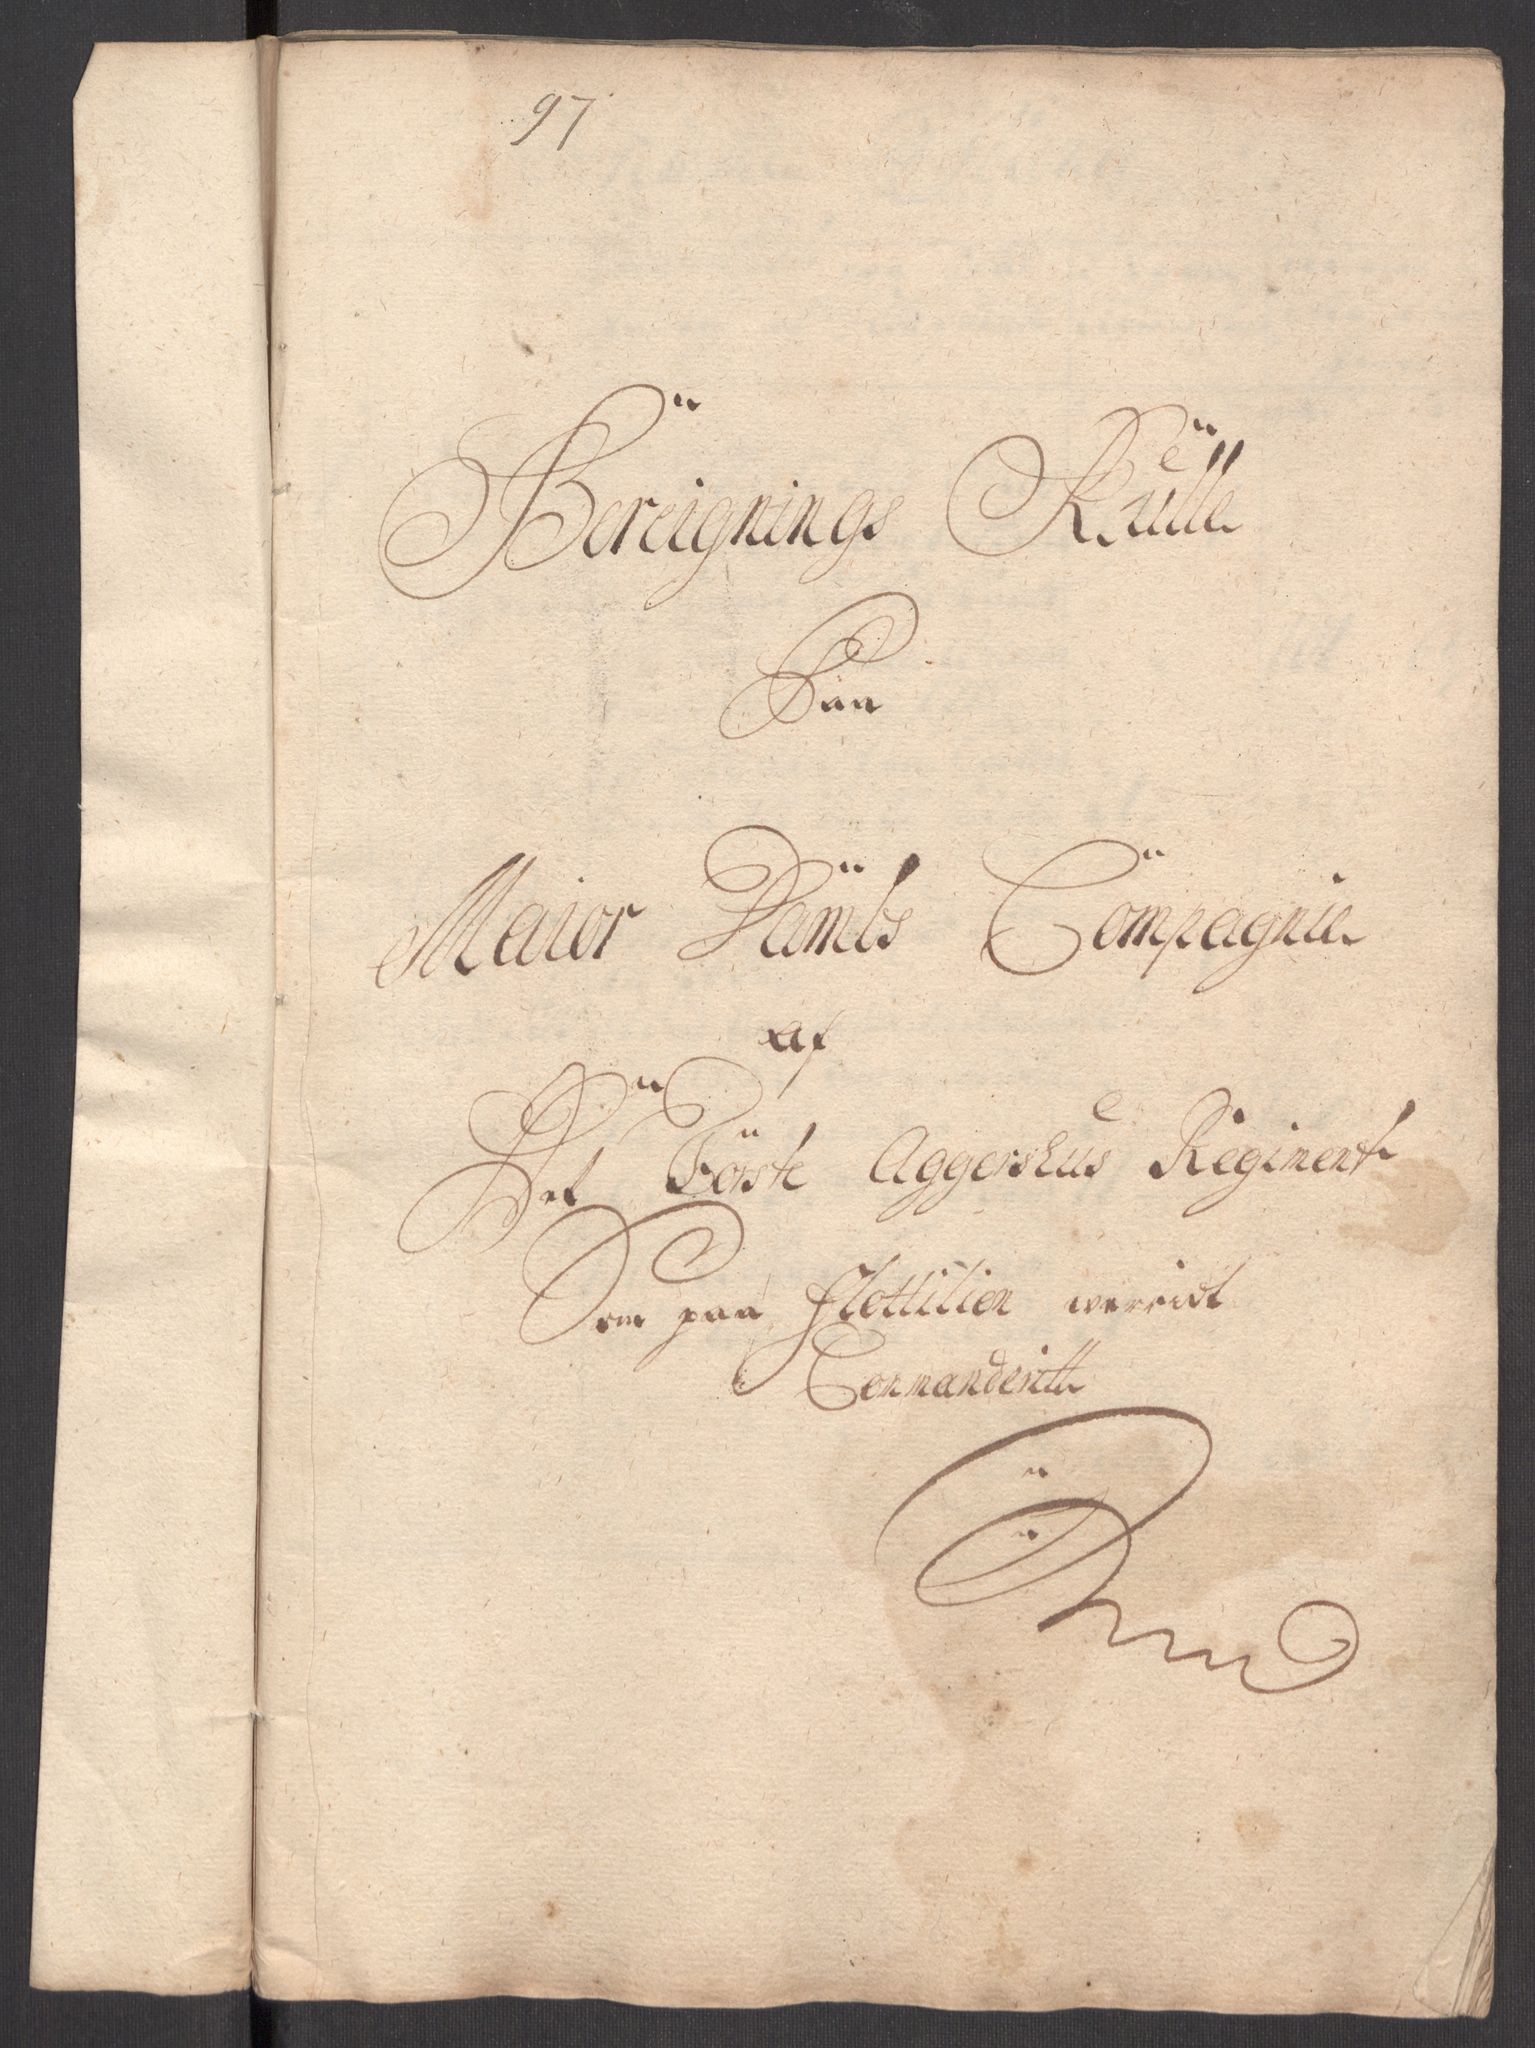 97
Bereignings Rulle
Paa
Maior Compagnie
af
Det Förste Aggershus Regiment
Som paa flottilien werridt
Commanderitt